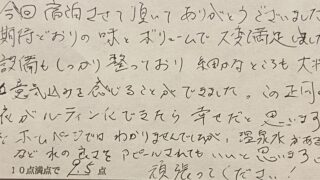 今回 宿泊させて頂いて ありがとうございました
期待どおりの味とボリュームで大変満足しました
設備もしっかり整っており 細かなところも大
な意気込みを感じることができました。この正月の
夜がルティンにできたら 幸せだと思います
ホームページではわかりませんでしたが、温泉水がある
など 水の良さをアピールされてもいいと思います
10点満点で 9.5点 頑張ってください!